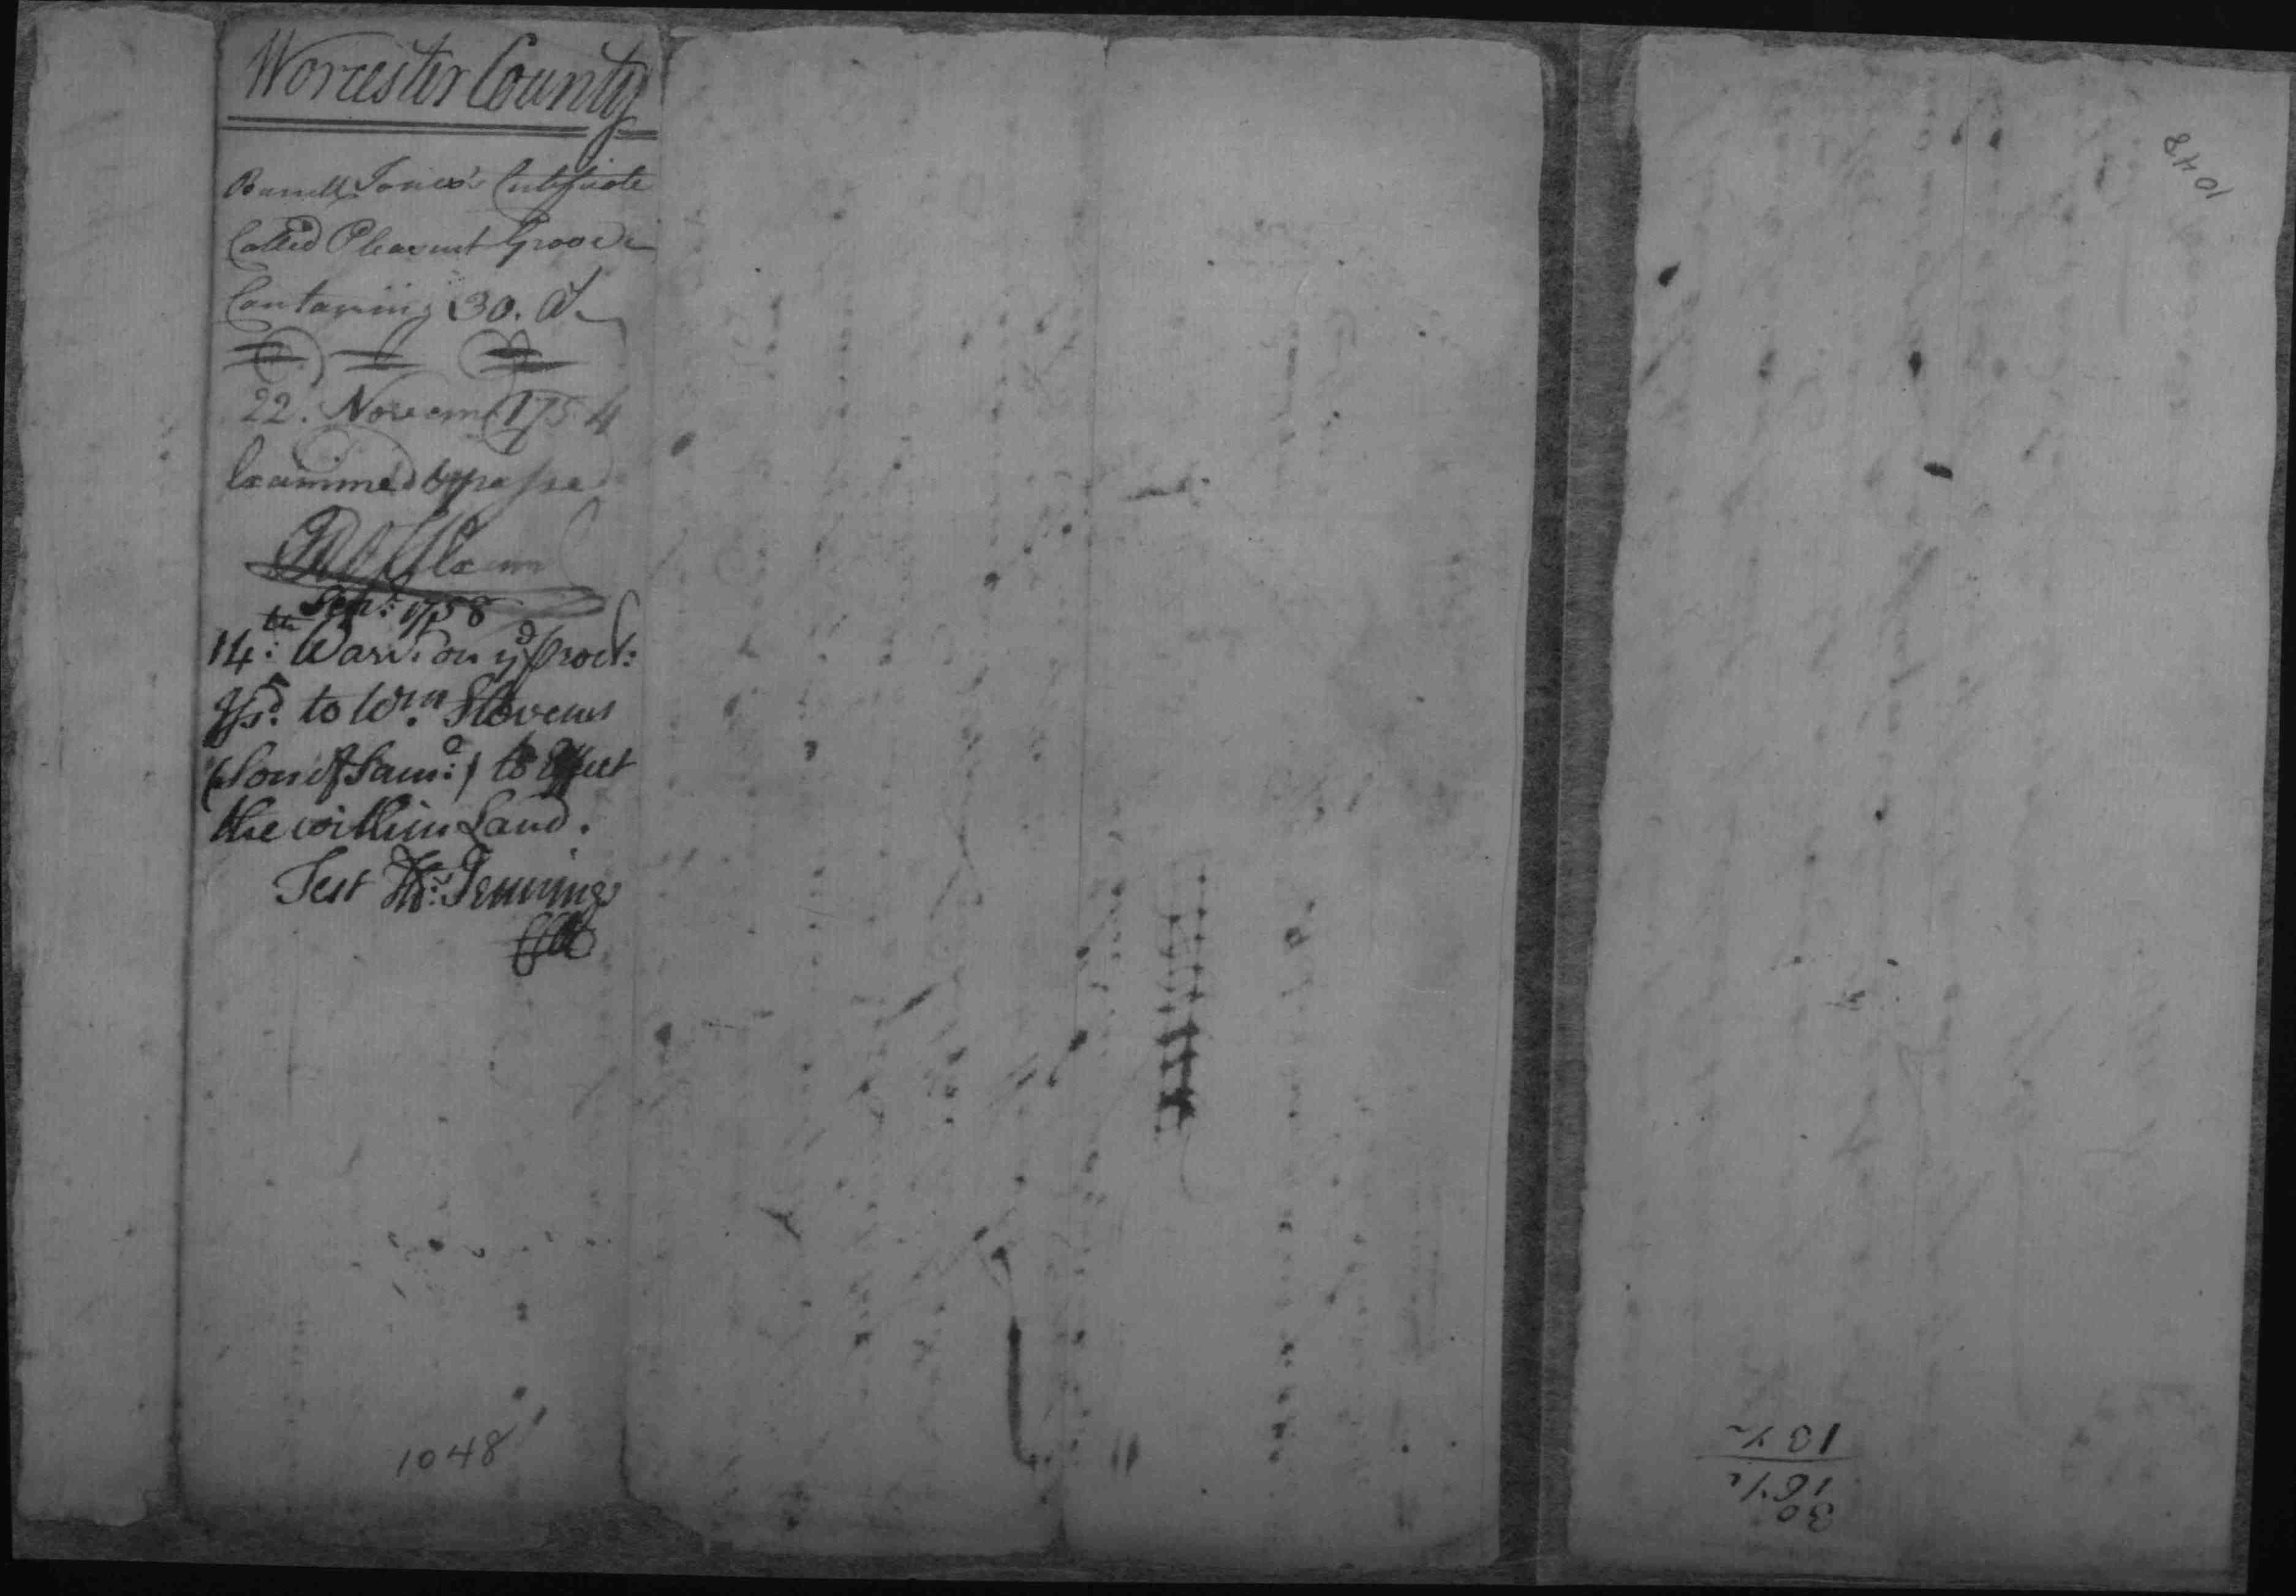 Worcester County
Jones's Certificate
Called Pleasant Groove
Contaning 30. a.
22. Novem 1754
Examined & passed
Sepr: 1758
14:th Warr. on ye Procl:
Issd. to Wm. Stevens
(Son of Saml:) to Effect
the within Land.
Test Jennings
1048
1048
30
16 1/2
13 1/2